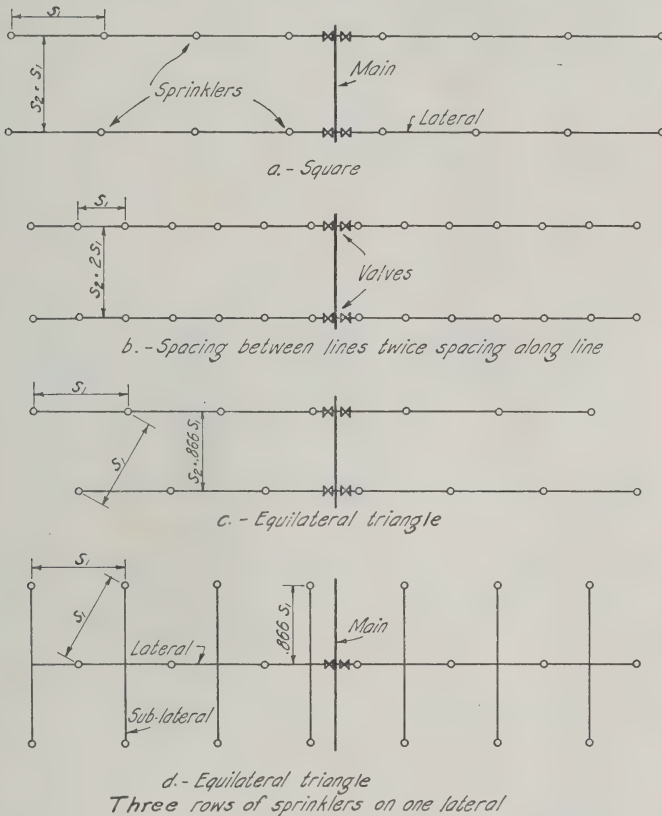 S₁
S₂ = S₁
Sprinklers
Main
Lateral
a.- Square
S₁
S₂ = 2 S₁
Valves
b. - Spacing between lines twice spacing along line
S₁
S₁
S₂ = .866 S₁
c. - Equilateral triangle
S₁
S₁
.866 S₁
Main
Lateral
Sub-lateral
d. - Equilateral triangle
Three rows of sprinklers on one lateral